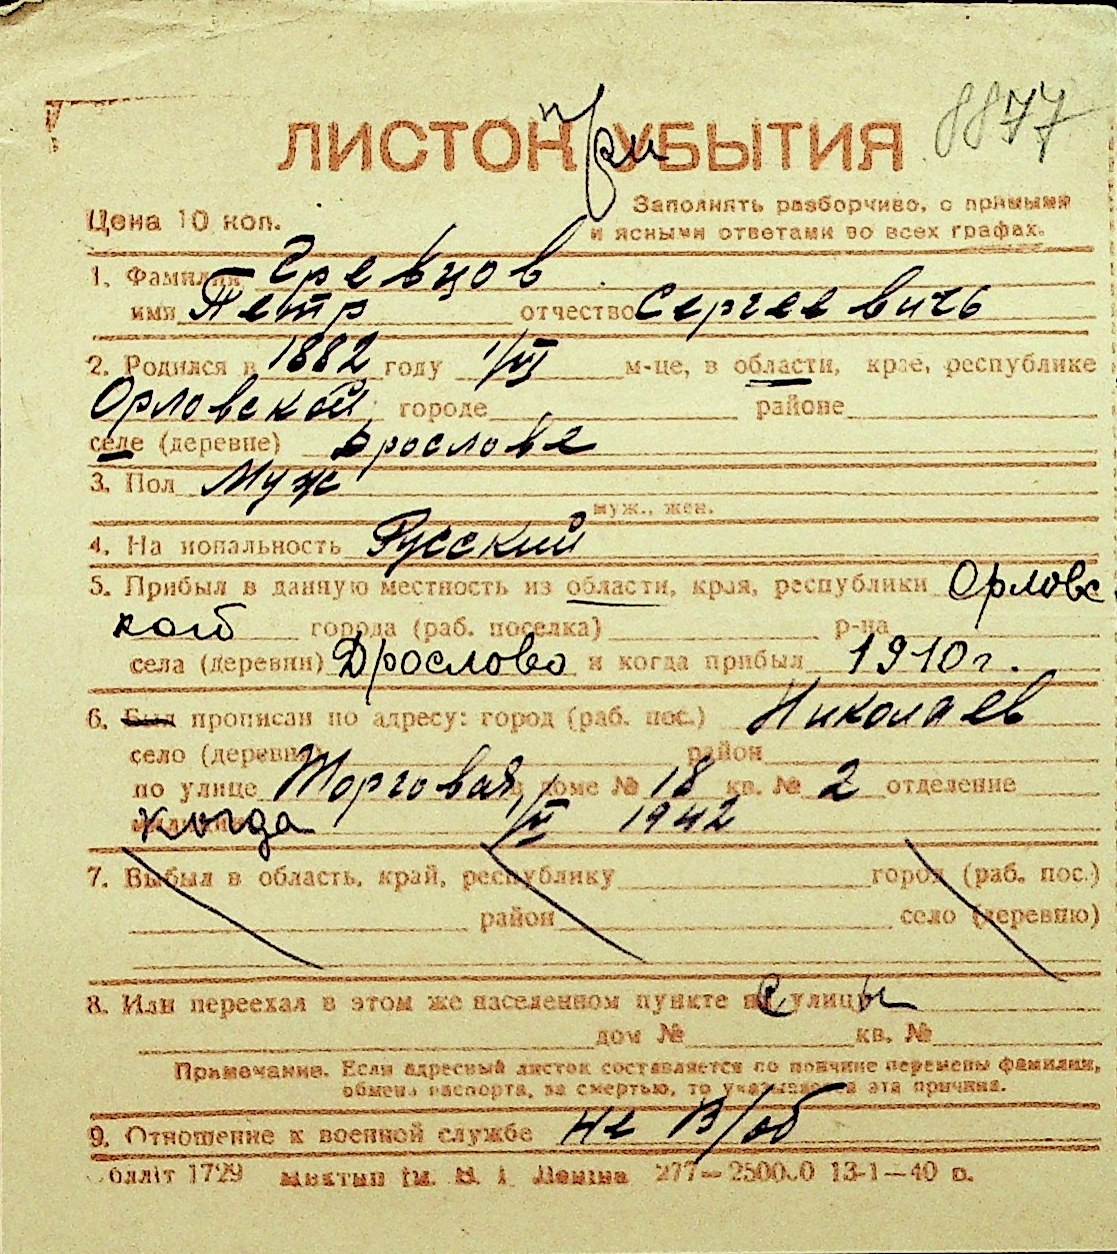 8877
ЛИСТОК УБЫТИЯ
при
Цена 10 коп.
Заполнять разборчиво, с прямыми
и ясными ответами во всех графах.
1. Фамилия Гревцов
имя Петр отчество Сергеевичь
2. Родился в 1882 году 1/III м-це, в области, крае, республике
Орловской городе районе
селе (деревне)
3. Пол Муж
муж., жен.
4. На иональность Русский
5. Прибыл в данную местность из области, края, республики Орловс
кой города (раб. поселка) р-на
села (деревни) Дрослово и когда прибыл 1910 г.
6. Был прописан по адресу: город (раб. пос.) Николаев
село (деревня) район
по улице Торговая в доме № 18 кв. № 2 отделение
когда 1942
7. Выбыл в область, край, республику город (раб. пос.)
район село (деревню)
8. Или переехал в этом же населенном пункте с улицы
дом № кв. №
Примечание. Если адресный листок составляется по причине перемены фамилии,
обмена паспорта, за смертью, то указывается эта причина.
9. Отношение к военной службе не в/об
бллiт 1729 Миктип iм. В. I. Ленiна 277—2500.0 13-1—40 р.